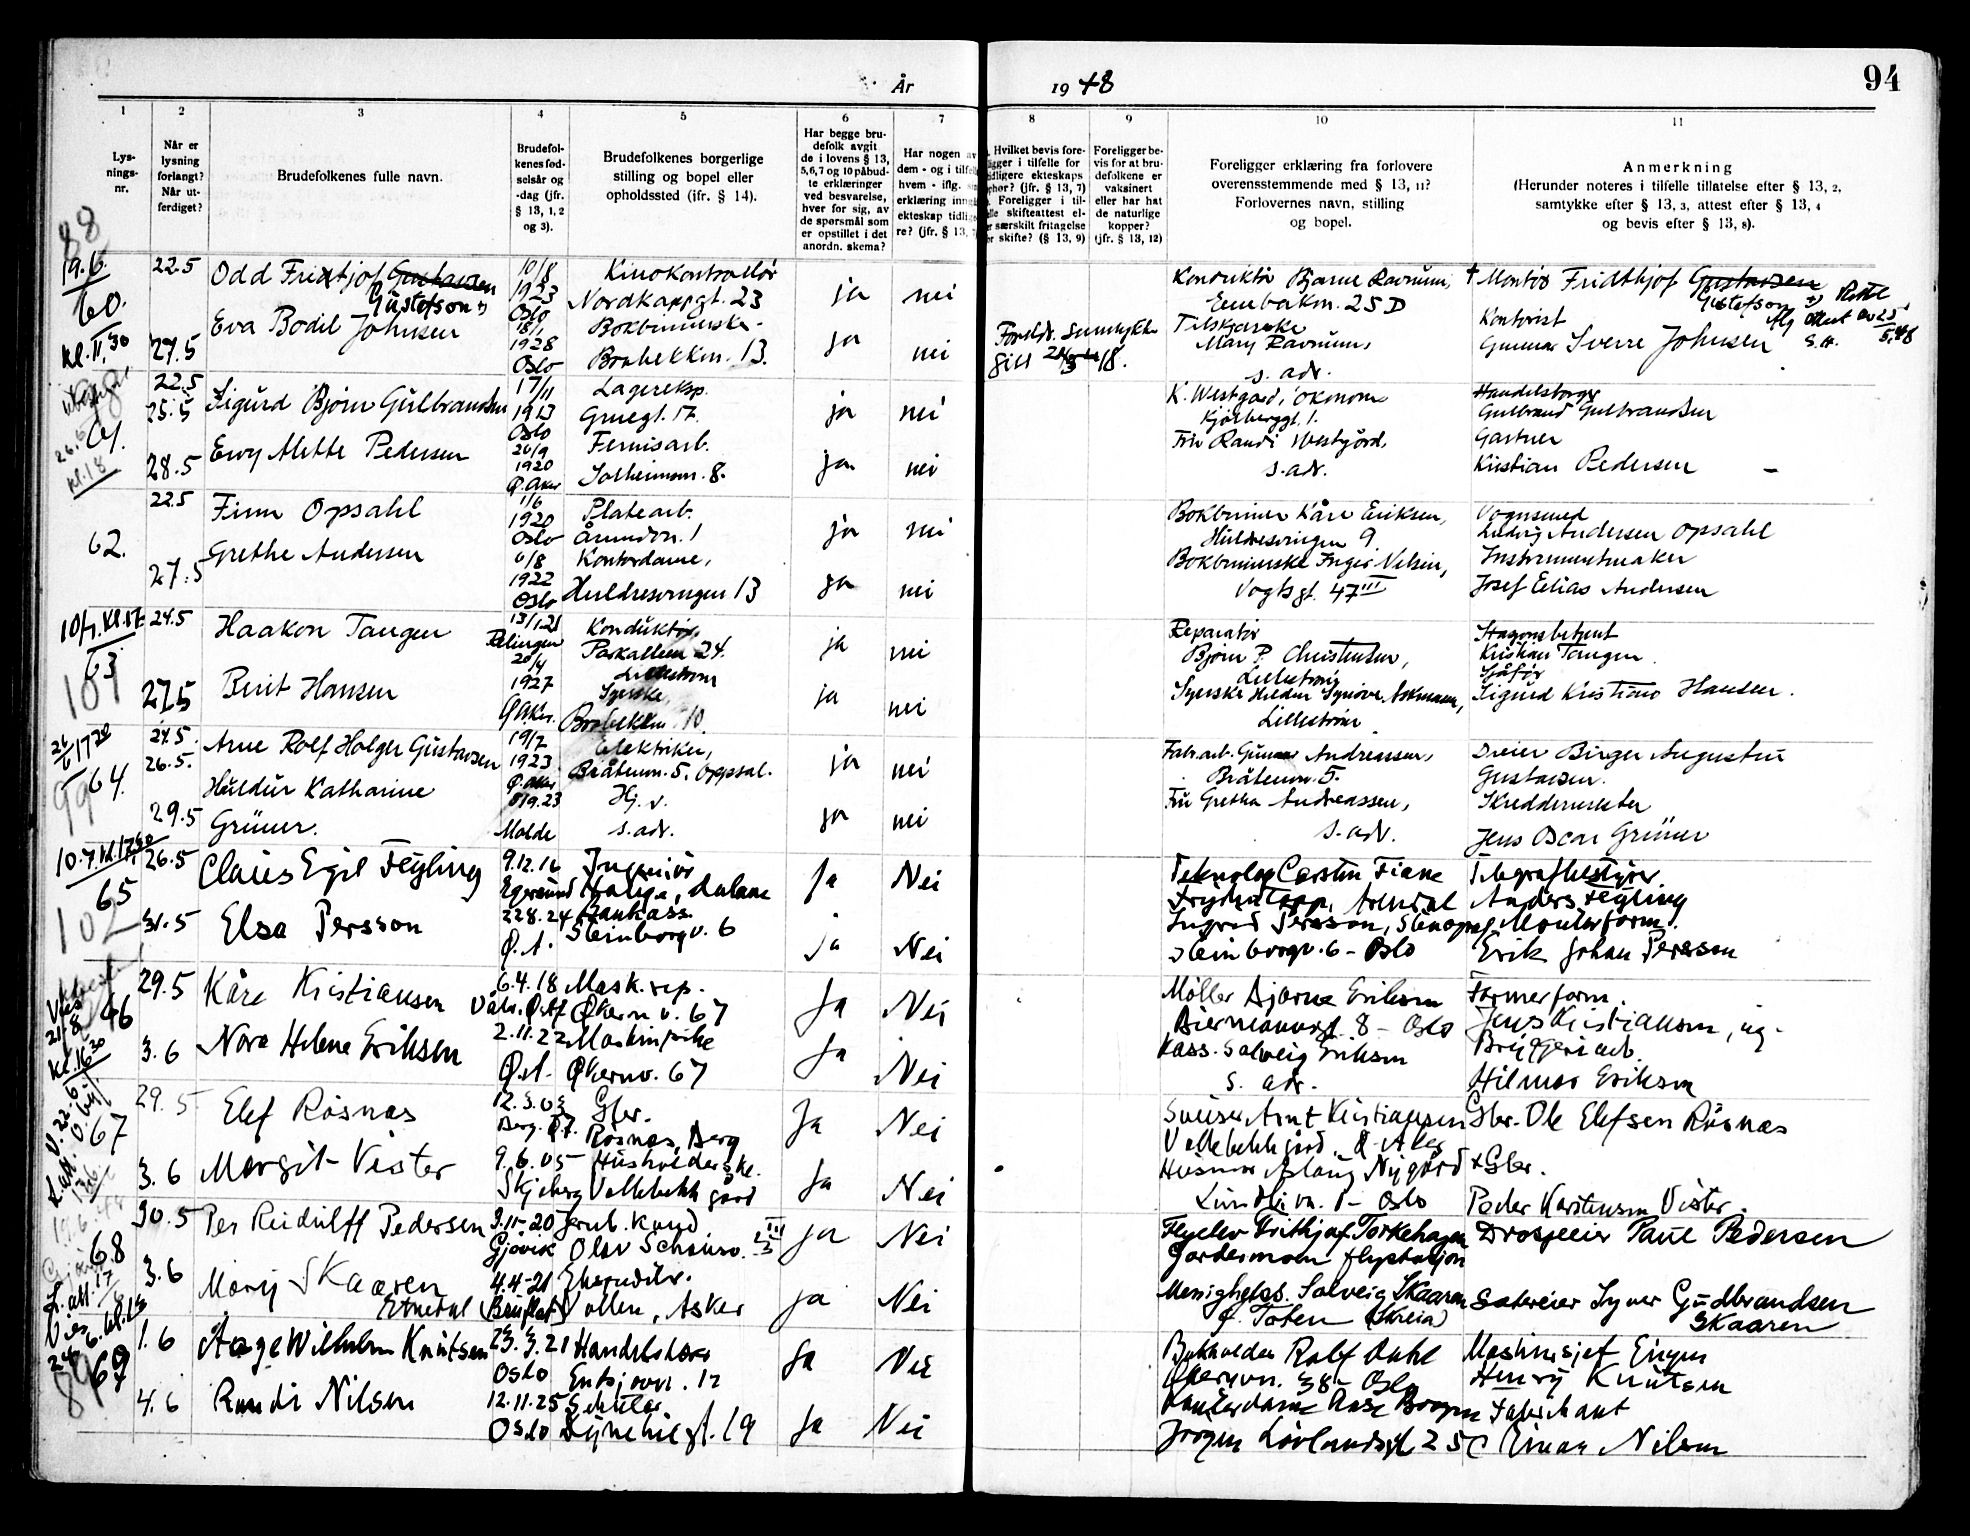 År 1948
94
1 2 3 4 5 6 7 8 9 10 11
Lys-
nings-
nr.
Når er
lysning
forlangt?
Når ut-
ferdiget?
Brudefolkenes fulle navn.
Brudefol-
kenes fød-
selsår og
-dag (jfr.
§ 13, 1, 2
og 3).
Brudefolkenes borgerlige
stilling og bopel eller
opholdssted (ifr. § 14).
Har begge bru-
defolk avgit
de i lovens § 13,
5, 6, 7 og 10 påbud-
te erklæringer
ved besvarelse,
hver for sig, av
de spørsmål som
er opstillet i det
anordn. skema?
Har nogen av
dem - og i tilfelle
hvem - iflg.
erklæring inngått
ekteskap tidlige-
re? (jfr. § 13,
Hvilket bevis fore-
ligger i tilfelle for
tidligere ekteskaps
ophør? (jfr. § 13, 7)
Foreligger i til-
felle skifteattest el-
ler særskilt fritagelse
for skifte? (§ 13, 9)
Foreligger be-
vis for at bru-
defolkene er
vaksinert
eller har hat
de naturlige
kopper?
(jfr. § 13, 12)
Foreligger erklæring fra forlovere
overensstemmende med § 13, 11?
Forlovernes navn, stilling
og bopel.
Anmerkning
(Herunder noteres i tilfelle tillatelse efter § 13, 2,
samtykke efter § 13, 3, attest efter § 13, 4
og bevis efter § 13, 8).
88
19.6
60.
kl. 11,30
22.5
27.5
Odd Fridtjof Gustavsen
Gustafson
Eva Bodil Johnsen
10/8
1923
Oslo
18/1
1928
Oslo
Kinokontrollør
Nordkappgt. 23
Bokbinderske
Brobekkvn. 13.
ja nei
ja nei
Foreldr. samtykke
Konduktør Bjarne Ravnum,
Enebakvn. 25 D
Mary Ravnum,
s. adr.
Montør Fridthjof Gustavsen
Gustafson
Kontorist
Gunnar Sverre Johnsen
61.
kl. 18
22.5
25.5
28.5
Sigurd Bjørn Gulbrandsen
Ewy Mette Pedersen
17/11
1913
Oslo
20/9
1920
Ø. Aker
Lagereksp.
Gruegt. 17.
Fernisarb.
Solheimsn. 8.
ja nei
ja nei
K. Westgård, økonom
Kjølberggt. 1.
Fru Randi Westgård,
s. adr.
Handelsborger
Gulbrand Gulbrandsen
Gartner
Kristian Pedersen
62.
22.5
27.5
Finn Opsahl
Grethe Andersen
1/6
1920
Oslo
6/8
1922
Oslo
Platearb.
Årundvn. 1
Kontordame,
Huldresvingen 13
ja nei
ja nei
Bokbinder Kåre Eriksen,
Huldresvingen 9
Bokbinderske Inger Nilsen,
Vogtsgt. 47 III
Vognsmed
Ludvig Andersen Opsahl
Instrumentmaker
Josef Elias Andersen
10/7. kl. 17
63
101
24.5
27.5
Haakon Tangen
Berit Hansen
13/1.21
Rælingen
20/4
1927
Ø. Aker.
Konduktør,
Parkalleen 24.
Lillestrøm
Syerske,
Brobekkvn. 10.
ja nei
ja nei
Reparatør
Bjørn P. Christensen,
Lillestrøm
Lillestrøm
Stasjonsbetjent
Kristian Tangen
Sjåfør
Sigurd Kristian Hansen.
26/6 17 20
64.
99
24.5.
26.5.
29.5
Arne Rolf Holger Gustavsen
Huldur Katharine
Grüner.
19/7
1923
Ø. Aker
8/9.23
Molde
Elektriker,
Bråtenvn. 5. Oppsal.
Hj. v.
s. adr.
ja nei
ja nei
Fabr.arb. Gunnar Andreassen,
Bråtenvn. 5.
Fru Gretha Andreassen,
s. adr.
Dreier Birger Augustin
Gustavsen.
Skreddermester
Jens Oscar Grüner
10.7. kl. 17,30
65
102
26.5
31.5
Claus Egil Feyling
Elsa Persson
9.12.16
Egersund
22.8.24
Ø. A.
Ingeniør
Hauge, Dalane
Bankass.
Steinborgv. 6
Ja Nei
ja Nei
Teknolog Carsten Fiane
Arendal
Ingrid Persson, Stenograf
Steinborgv. 6 - Oslo
Telegrafbestyrer
Anders Feyling
Montørform.
Erik Johan Persson
Vies
21.8
kl. 16 30
66
29.5
3.6
Kåre Kristiansen
Nora Helene Eriksen
6.4.18
2.11.22
Ø.A.
Mask.rep.
Økern v. 67
Økernv. 67
Ja Nei
Ja Nei
Møller Bjarne Eriksen
Biermannsgt. 8 - Oslo
Kass. Solveig Eriksen
s. adr.
Formerform.
Jens Kristiansen, og
Bryggeriarb.
Hilmar Eriksen
67
29.5
3.6
Elef Rösnæs
Margit Vister
12.3.03
Berg. Øf.
9.6.05
Skjeberg
Gbr.
Rösnæs, Berg
Husholderske.
Vollebekk gård
Ja Nei
Ja Nei
Sveiser Arnt Kristiansen
Vollebekk gård Ø. Aker
Husmor Aslaug Nygård
Lundlivn. 1 - Oslo
Gbr. Ole Elefsen Rösnæs
Gbr.
Peder Karstensen Vister.
68
30.5
3.6
Per Reidulff Pedersen
Mary Skaaren
Etnedal
3.11-20
Gjøvik
4.4-21
(Bruflat)
Olav Schousv.
Vollen, Asker
ja Nei
ja Nei
Flyelev Frithjof Torkehagen
Gardermoen flystasjon
Solveig Skaaren
Ø. Toten (Kreia)
Drosjeeier Paul Pedersen
Sagereier Syver Gudbrandsen
Skaaren
69
89
1.6
4.6
Aage Wilhelm Knutsen
Randi Nilsen
23.3.21
Oslo
12.11.25
Oslo
Enebjørvn. 12
Dynekilgt. 19
Ja Nei
Ja Nei
Bokholder Rolf Dahl
Økernvn. 38 - Oslo
Kontordame Aase Bogen
Jørgen Løvlandsgt 25 C
Maskinsjef Eugen
Henry Knutsen
Fabrikant
Einar Nilsen